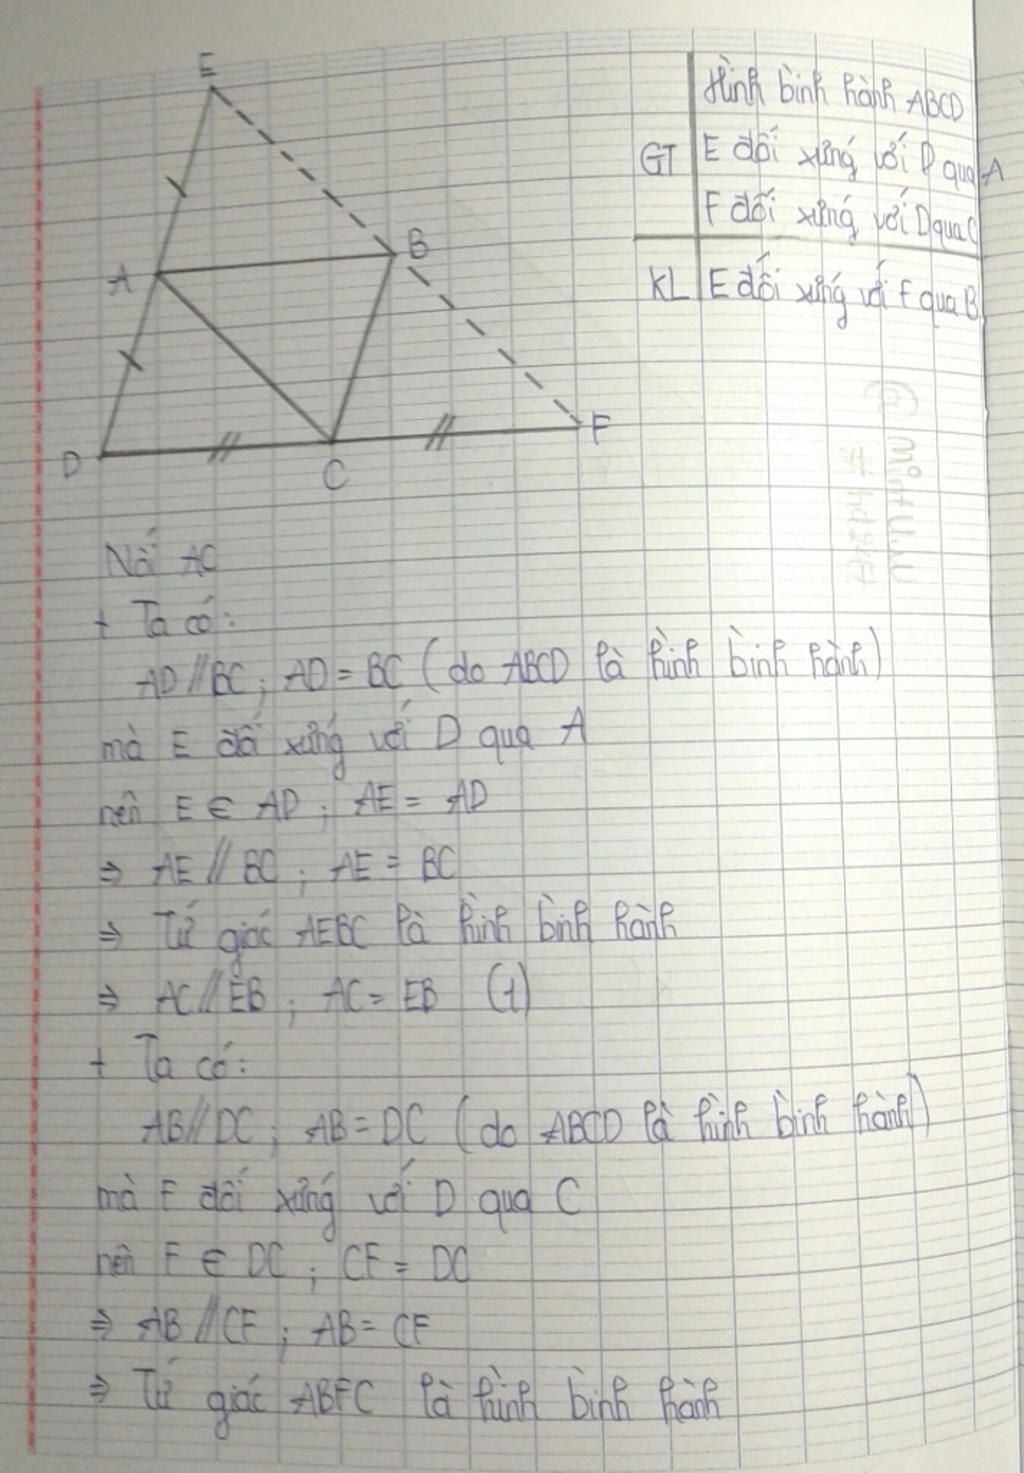 E
B
A
D
C
F
Hình bình hành ABCD
GT
E đối xứng với D qua A
F đối xứng với D qua C
KL
E đối xứng với F qua B
Nối AC
+ Ta có:
AD // BC ; AD = BC (do ABCD là hình bình hành)
mà E đối xứng với D qua A
nên E ∈ AD ; AE = AD
⇒ AE // BC ; AE = BC
⇒ Tứ giác AEBC là hình bình hành
⇒ AC // EB ; AC = EB (1)
+ Ta có:
AB // DC ; AB = DC (do ABCD là hình bình hành)
mà F đối xứng với D qua C
nên F ∈ DC ; CF = DC
⇒ AB // CF ; AB = CF
⇒ Tứ giác ABFC là hình bình hành